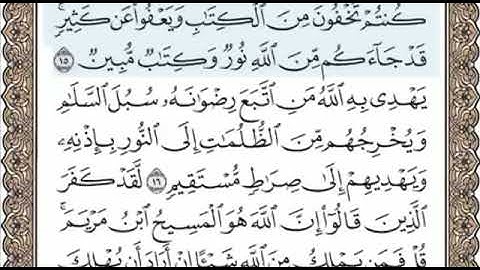 كُنتُمْ تُخْفُونَ مِنَ ٱلْكِتَٰبِ وَيَعْفُوا۟ عَن كَثِيرٍۚ
قَدْ جَآءَكُم مِّنَ ٱللَّهِ نُورٌ وَكِتَٰبٌ مُّبِينٌ ١٥
يَهْدِى بِهِ ٱللَّهُ مَنِ ٱتَّبَعَ رِضْوَٰنَهُۥ سُبُلَ ٱلسَّلَٰمِ
وَيُخْرِجُهُم مِّنَ ٱلظُّلُمَٰتِ إِلَى ٱلنُّورِ بِإِذْنِهِۦ
وَيَهْدِيهِمْ إِلَىٰ صِرَٰطٍ مُّسْتَقِيمٍ ١٦ لَّقَدْ كَفَرَ
ٱلَّذِينَ قَالُوٓا۟ إِنَّ ٱللَّهَ هُوَ ٱلْمَسِيحُ ٱبْنُ مَرْيَمَۚ
قُلْ فَمَن يَمْلِكُ مِنَ ٱللَّهِ شَيْـًٔا إِنْ أَرَادَ أَن يُهْلِكَ